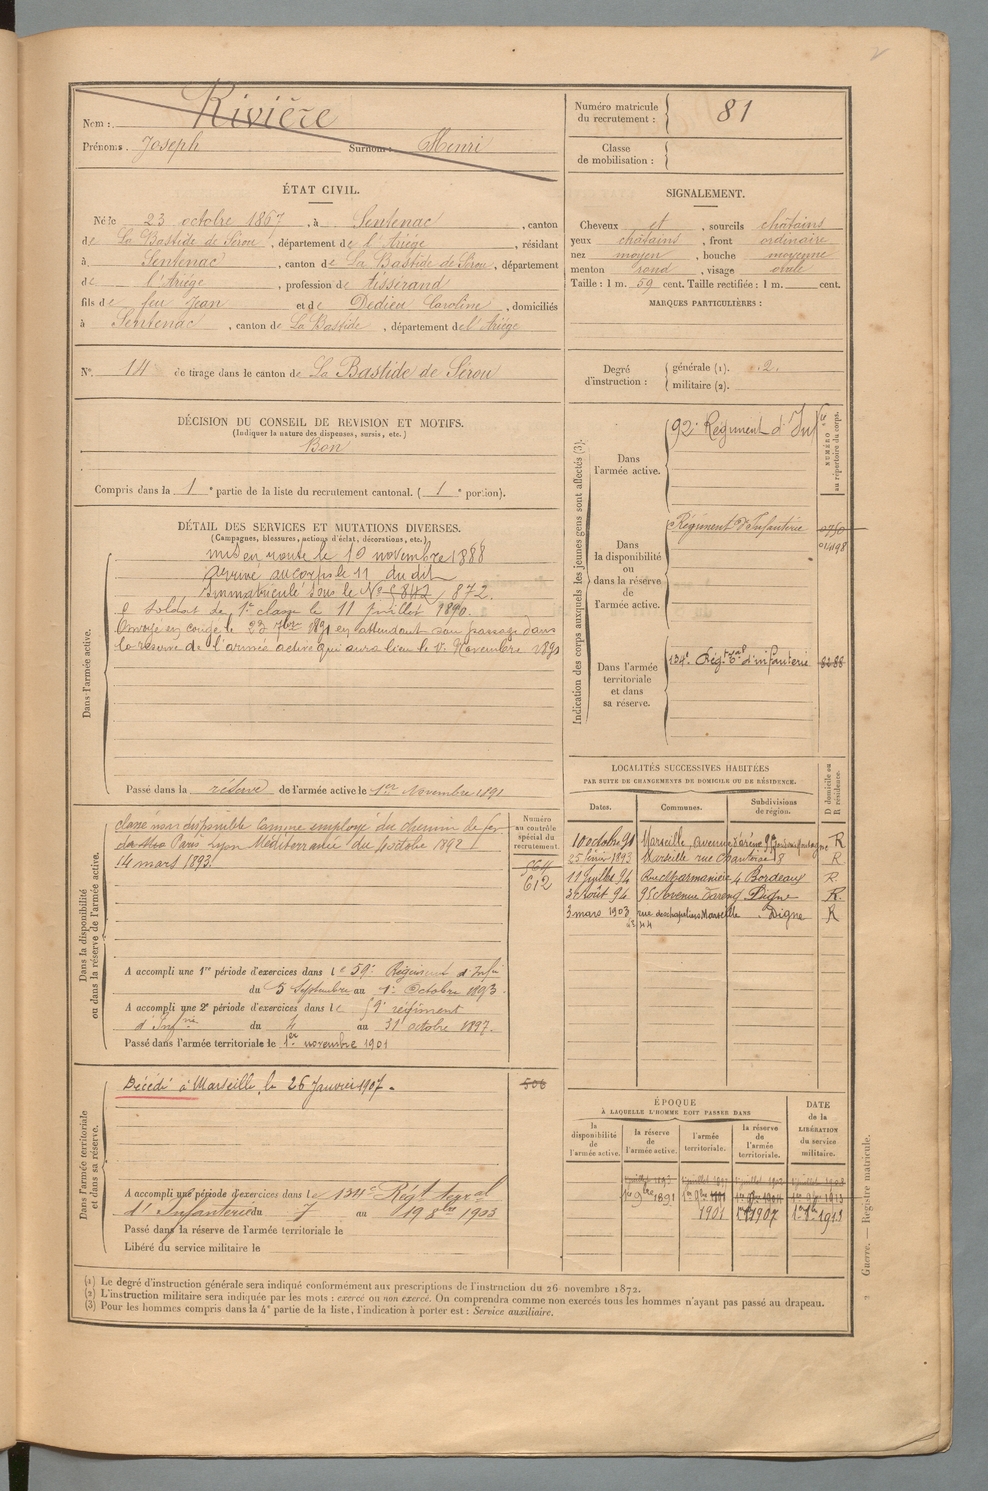 2
Nom : Rivière
Prénoms : Joseph Surnom : Henri
Numéro matricule du recrutement : 81
Classe de mobilisation :
ÉTAT CIVIL.
Né le 23 octobre 1867, à Sentenac, canton
de La Bastide de Sérou, département de l'Ariége, résidant
à Sentenac, canton de La Bastide de Sérou, département
de l'Ariége, profession de tisserand
fils de feu Jean et de Dedieu Caroline, domiciliés
à Sentenac, canton de La Bastide, département de l'Ariége
SIGNALEMENT.
Cheveux et, sourcils châtains
yeux châtains, front ordinaire
nez moyen, bouche moyenne
menton rond, visage ovale
Taille : 1 m. 59 cent. Taille rectifiée : 1 m. cent.
MARQUES PARTICULIÈRES :
N° 14 de tirage dans le canton de La Bastide de Sérou
Degré d'instruction : générale (1). 2.
militaire (2).
DÉCISION DU CONSEIL DE REVISION ET MOTIFS.
(Indiquer la nature des dispenses, sursis, etc.)
Bon
Compris dans la 1e partie de la liste du recrutement cantonal. (1e portion).
DÉTAIL DES SERVICES ET MUTATIONS DIVERSES.
(Campagnes, blessures, actions d'éclat, décorations, etc.)
Dans l'armée active.
mis en route le 10 novembre 1888
Arrivé au corps le 11 du dit
Immatriculé sous le N° 872.
Soldat de 1e classe le 11 Juillet 1890.
Envoyé en congé le 23 7bre 1891 en attendant son passage dans
la réserve de l'armée active qui aura lieu le 1er Novembre 1891
Passé dans la réserve de l'armée active le 1er Novembre 1891
Indication des corps auxquels les jeunes gens sont affectés (3).
NUMÉRO au répertoire du corps.
Dans l'armée active. 92e Régiment d'Inf
Dans la disponibilité ou dans la réserve de l'armée active.
Régiment d'Infanterie
Dans l'armée territoriale et dans sa réserve.
134e Régt Tal d'infanterie 8288
Dans la disponibilité ou dans la réserve de l'armée active.
Numéro au contrôle spécial du recrutement.
classé non disponible comme employé du chemin de fer
Paris Lyon Méditerranée du 4 octobre 1892
14 mars 1893.
612
A accompli une 1re période d'exercices dans le 59e Régiment d'Infie
du 5 Septembre au 1er Octobre 1893.
A accompli une 2e période d'exercices dans le 59e régiment
d'Infrie du 4 au 31 octobre 1897.
Passé dans l'armée territoriale le 1er novembre 1901
LOCALITÉS SUCCESSIVES HABITÉES
PAR SUITE DE CHANGEMENTS DE DOMICILE OU DE RÉSIDENCE.
Dates. Communes. Subdivisions de région. D domicile ou R résidence.
10 octobre 91 Marseille, avenue d'arenc R
25 février 1893 Marseille rue 8 R
11 Juillet 94 4 Bordeaux R
31 Août 94 95 Avenue d'arenc Digne R.
3 mars 1903 Marseille Digne R
Dans l'armée territoriale et dans sa réserve.
Décédé à Marseille, le 26 Janvier 1907.
506
A accompli une période d'exercices dans le 134e Régt terral
d'Infanterie du 7 au 19 8bre 1903
Passé dans la réserve de l'armée territoriale le
Libéré du service militaire le
ÉPOQUE
À LAQUELLE L'HOMME DOIT PASSER DANS
la disponibilité de l'armée active.
la réserve de l'armée active.
l'armée territoriale.
la réserve de l'armée territoriale.
DATE de la LIBÉRATION du service militaire.
1er 9bre 1891
1901 1907 1913
(1) Le degré d'instruction générale sera indiqué conformément aux prescriptions de l'instruction du 26 novembre 1872.
(2) L'instruction militaire sera indiquée par les mots : exercé ou non exercé. On comprendra comme non exercés tous les hommes n'ayant pas passé au drapeau.
(3) Pour les hommes compris dans la 4e partie de la liste, l'indication à porter est : Service auxiliaire.
Guerre. — Registre matricule.